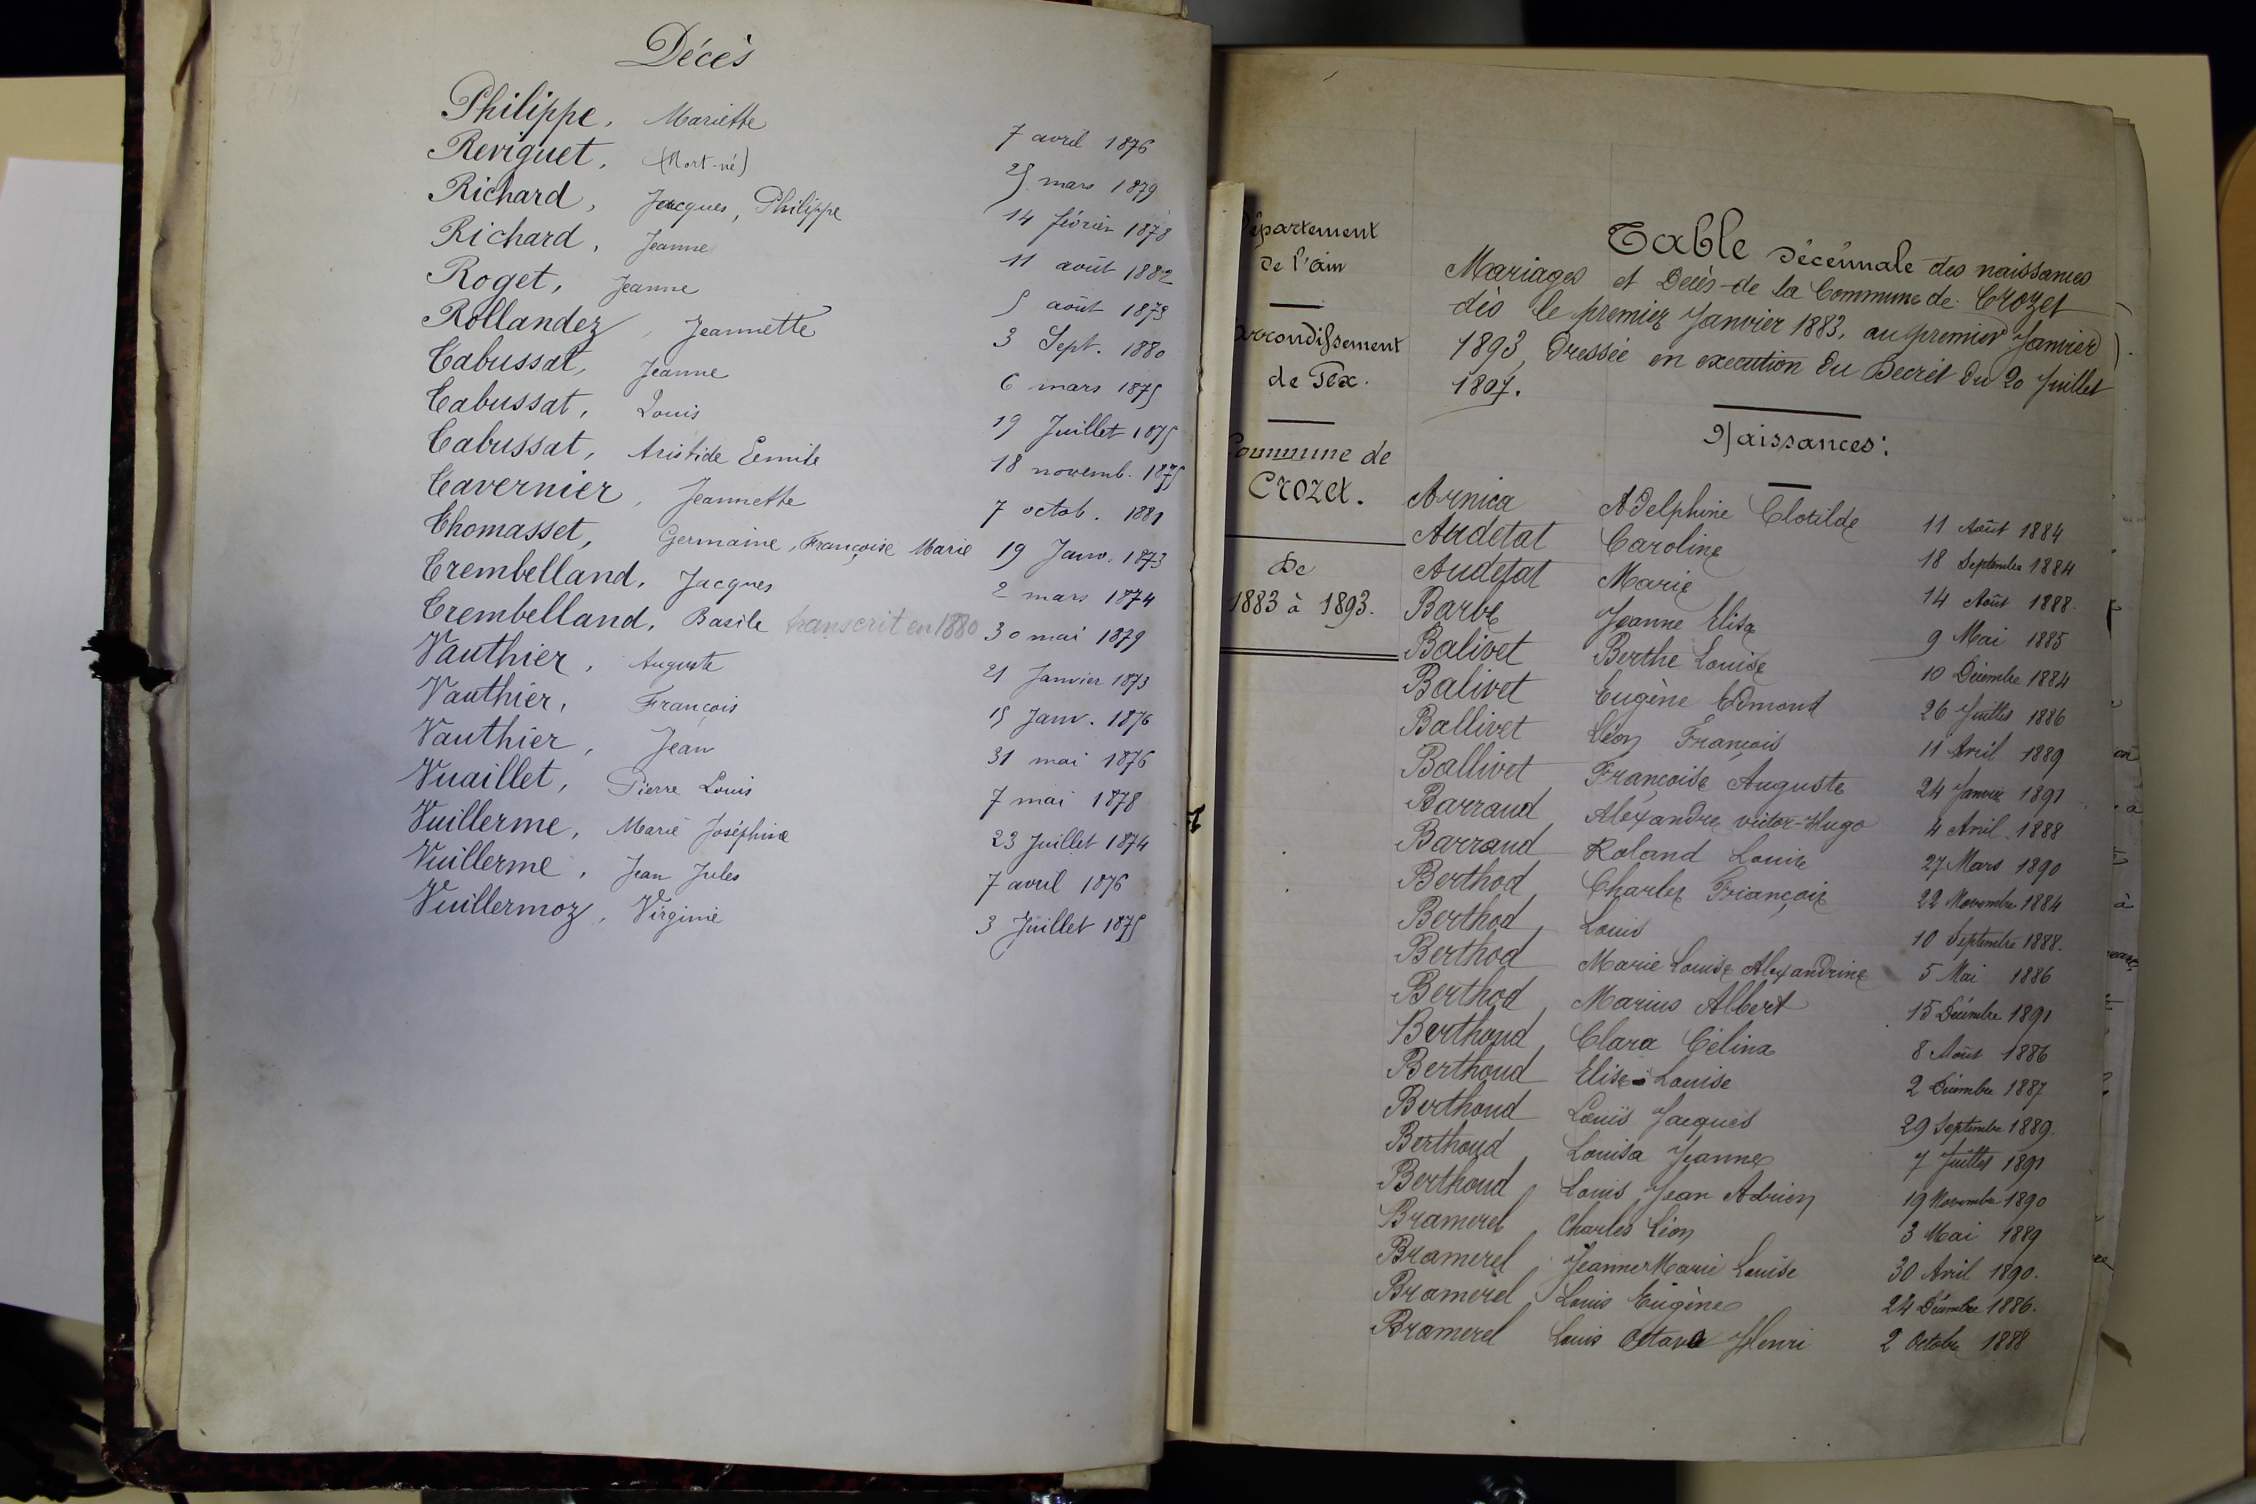 Décès
Philippe, Mariette 7 avril 1876
Reviguet, (Mort-né) 25 mars 1879
Richard, Jacques, Philippe 14 février 1878
Richard, Jeanne 11 août 1882
Roget, Jeanne 5 août 1873
Rollandez, Jeannette 3 Sept. 1880
Tabussat, Jeanne 6 mars 1875
Tabussat, Louis 19 Juillet 1875
Tabussat, Aristide Emile 18 novemb. 1875
Tavernier, Jeannette 7 octob. 1881
Thomasset, Germaine, Françoise Marie 19 Janv. 1873
Trembelland, Jacques 2 mars 1874
Trembelland, Basile transcrit en 1880 30 mai 1879
Vauthier, Auguste 21 Janvier 1873
Vauthier, François 15 Janv. 1876
Vauthier, Jean 31 mai 1876
Vuaillet, Pierre Louis 7 mai 1878
Vuillerme, Marie Joséphine 23 Juillet 1874
Vuillerme, Jean Jules 7 avril 1876
Vuillermoz, Virginie 3 Juillet 1875
Département
de l'Ain
arrondissement
de Gex.
Commune de
Crozet.
De
1883 à 1893.
Table décennale des naissances
Mariages et Décès de la Commune de Crozet
dès le premier Janvier 1883, au premier Janvier
1893, Dressée en execution du Decrèt du 20 Juillet
1807.
Naissances:
Arnica Adelphine Clotilde 11 Août 1884
Audetat Caroline 18 Septembre 1884
Audetat Marie 14 Août 1888.
Barbe Jeanne Elisa 9 Mai 1885
Balivet Berthe Louise 10 Décembre 1884
Balivet Eugène Edmond 26 Juillet 1886
Ballivet Léon François 11 Avril 1889
Ballivet Françoise Auguste 24 Janvier 1891
Barraud Aléxandre victor-Hugo 4 Avril 1888
Barraud Roland Louis 27 Mars 1890
Berthod Charles François 22 Novembre 1884
Berthod Louis 10 Septembre 1888.
Berthod Marie Louise Alexandrine 5 Mai 1886
Berthod Marius Albert 15 Décembre 1891
Berthoud Clara Célina 8 Août 1886
Berthoud Elise-Louise 2 Décembre 1887
Berthoud Louis Jacques 29 Septembre 1889.
Berthoud Louisa Jeanne 7 Juillet 1891
Berthoud Louis Jean Adrien 19 Novembre 1890
Bramerel Charles Léon 3 Mai 1889
Bramerel Jeanne Marie Louise 30 Avril 1890.
Bramerel Louis Eugène 24 Décembre 1886.
Bramerel Louis Octave Henri 2 Octobre 1888